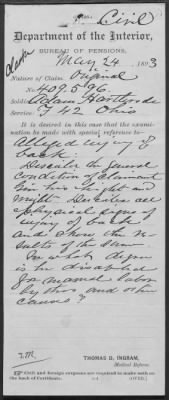 Civil
Department of the Interior,
BUREAU OF PENSIONS,
May 24, 1893
Nature of Claim, Original
No. 409.596
Soldier,
Service,
It is desired in this case that the exami-
nation be made with special reference to—
Alleged injury of
back.
Describe the general
condition of claimant
Give his height and
weight. Describe all
physical signs of
injury of back
and show the re-
sults of the same
In what degree
is he disabled
for manual labor
by this and other
causes?
THOMAS D. INGRAM,
Medical Referee.
Civil and foreign surgeons are required to make oath on
the back of Certificate.
(OVER.)